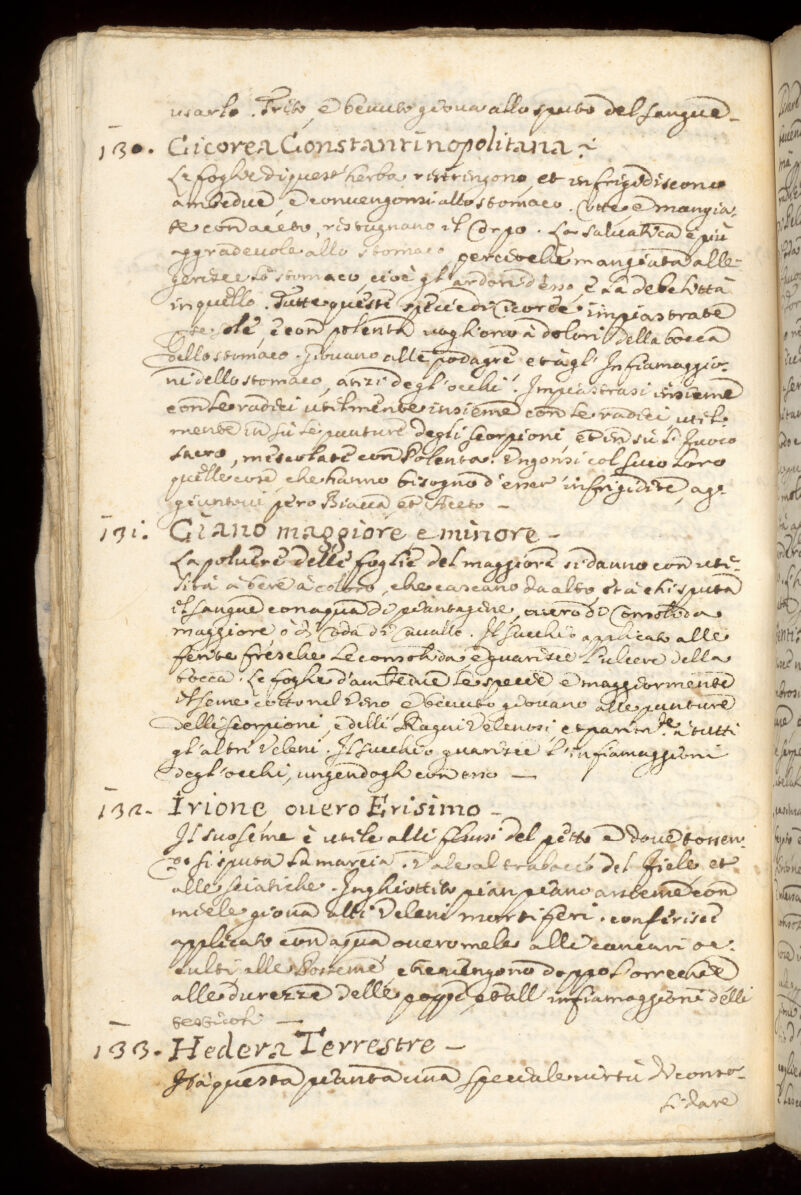 usarlo. Trito, e bevuto giova allo sputo del sangue
130. Cicorea Constantinopolitana.
Le foglie di quest'herba ristringono, et infrigidiscono
ambedue, e convengonsi allo stomaco. Cotte e mangia-
te con aceto, ristagnano il Corpo. La salvatica è più
aggradevole allo stomaco, percioche mangiata alle-
gerisce lo stomaco, cioè gl'ardori d'esso, e la debelittà
in quello. Tutte queste specie di Cicoree impiastrate
per se sole, e con polenta vagliono à dolori della bocca
dello stomaco. Giovano alle podagre et à gl'Infiamaggio-
ni dello stomaco, anzi degl'occhi. Impiastrasi insieme
con le radici utilmente insieme con le radici util-
mente in sù le punture degli scorpioni, et in sù li fuoco
sacro, mescolate con Polenta. Ungonsi col suco loro
quelle cose, che hanno bisogno d'esser infrigidite, ag-
giuntovi però Biacca, et Aceto -
131. Ciano maggiore e minore -
La polvere delle foglie del maggiore si danno con uti-
lità a bere à coloro, che cascano da alto et à chi sputa
il sangue con aqua di piantagine, overo di Consolida
maggiore ò di Coda di Cavallo. Il succhio applicato alle
ferite fresche le consolida, e guarisce l'ulcere della
bocca. Le foglie d'ambedue le specie e maggiormente
il seme cotto nel Vino e bevuto giovano alle punture
delli scorpioni, e delli Ragni Velenosi et parim.te à tutti
gl'altri Veleni. Il succhio guarisce l'infiamaggioni
degl'occhi, ungendogli con esso —
132. Irione overo Erisimo -
Il suo seme è utile alli flussi del petto e dove tossen-
do si sputa la marcia. Vale al trabacco del fiele et
alle sciatiche. Inghiottito pian piano assieme con
miele giova alli Veleni mortiferi. conferisce
applicato con aqua overo mele alli cancari oc-
culti alle Posteme, che vengono doppo l'orrecchie
alle durezze delle poppe et all'infiamaggioni delli
testicoli —
133. Hedera Terrestre -
Hà questa pianta una speciale virtù di conso-
lidare